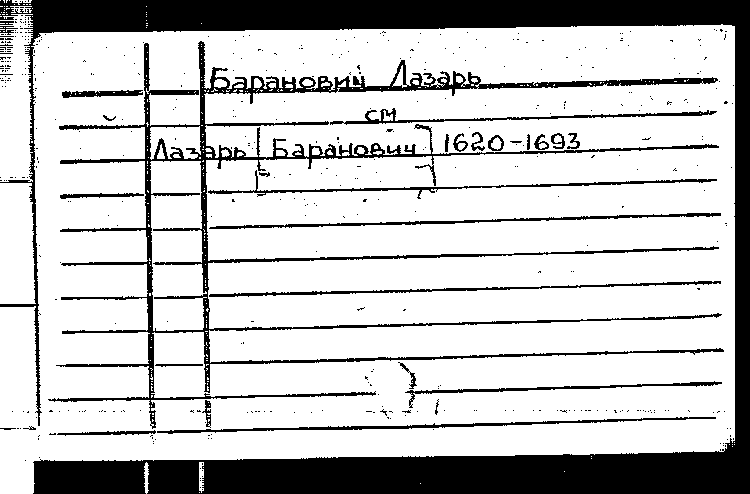 Баранович Лазарь
см
Лазарь [Баранович] 1620-1693